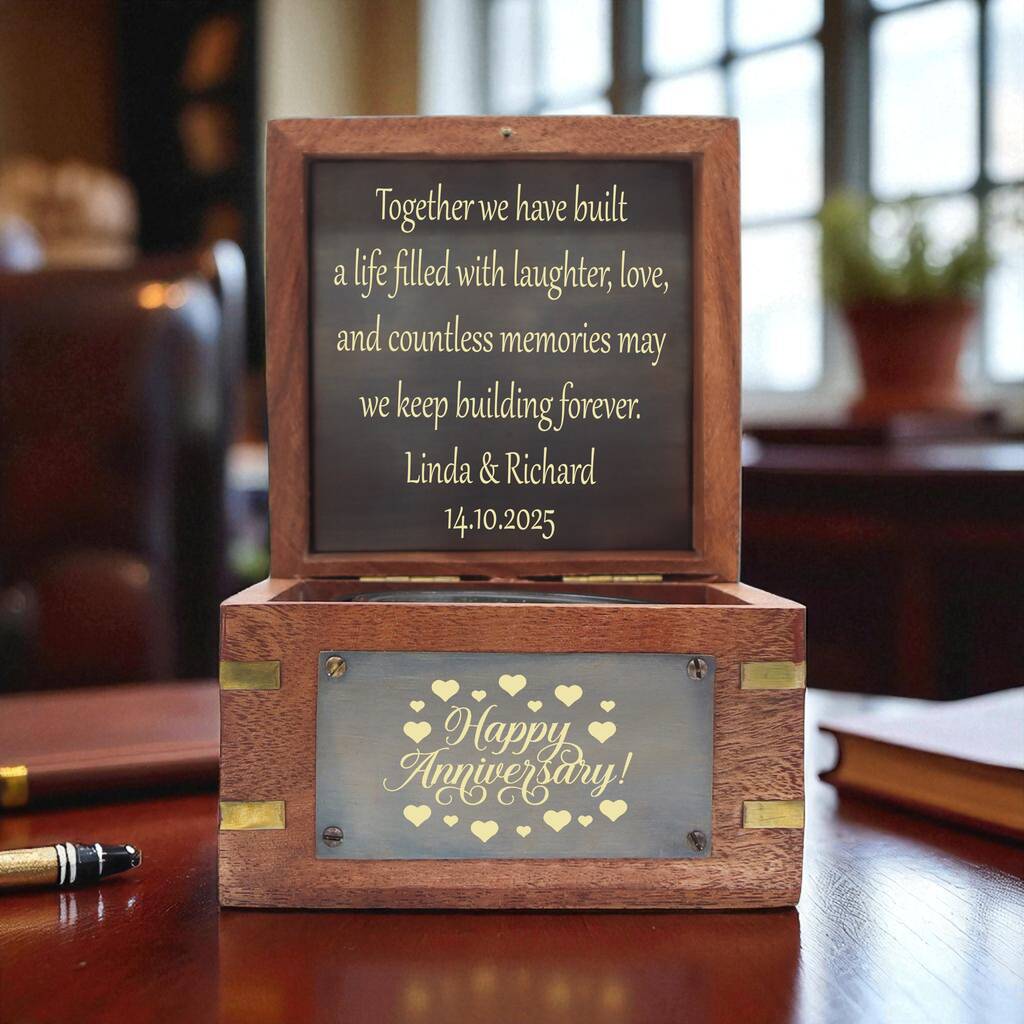 Together we have built
a life filled with laughter, love,
and countless memories may
we keep building forever.
Linda & Richard
14.10.2025
Happy
Anniversary!